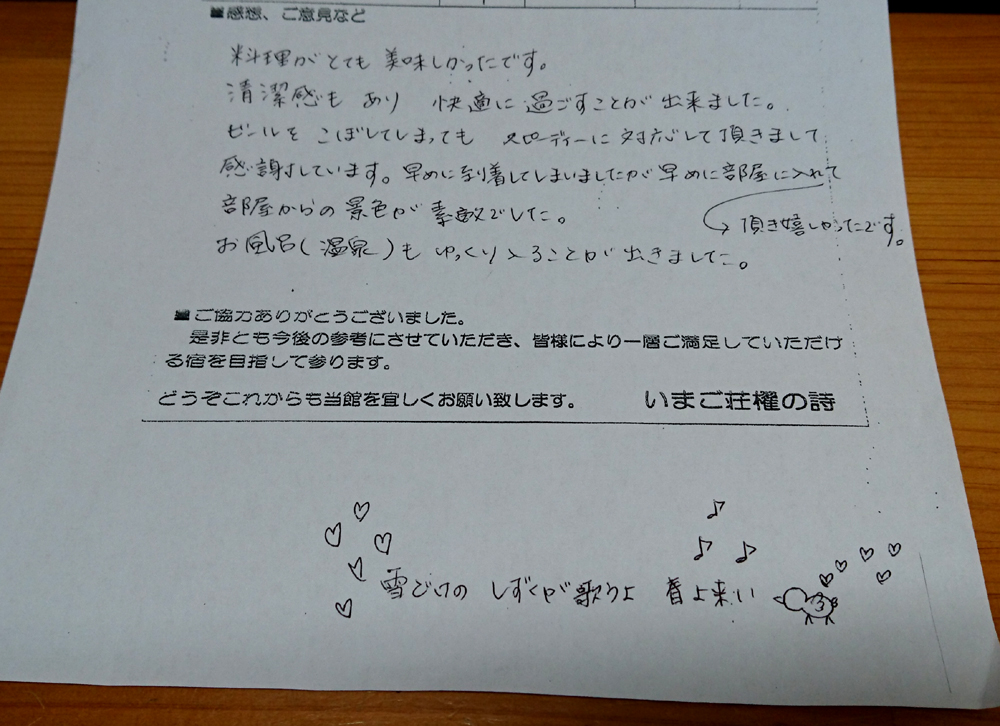 ■感想、ご意見など
料理がとても 美味しかったです。
清潔感も あり 快適に 過ごすことが 出来ました。
ビールを こぼしてしまっても スピーディーに 対応して頂きまして
感謝しています。早めに到着してしまいましたが早めに部屋に入れて
→頂き嬉しかったです。
部屋からの 景色が 素敵でした。
お風呂(温泉)も ゆっくり入ることが 出きました。
■ご協力ありがとうございました。
是非とも今後の参考にさせていただき、皆様により一層ご満足していただけ
る宿を目指して参ります。
どうぞこれからも当館を宜しくお願い致します。 いまご荘櫂の詩
雪どけの しずくが歌うよ 春よ来い